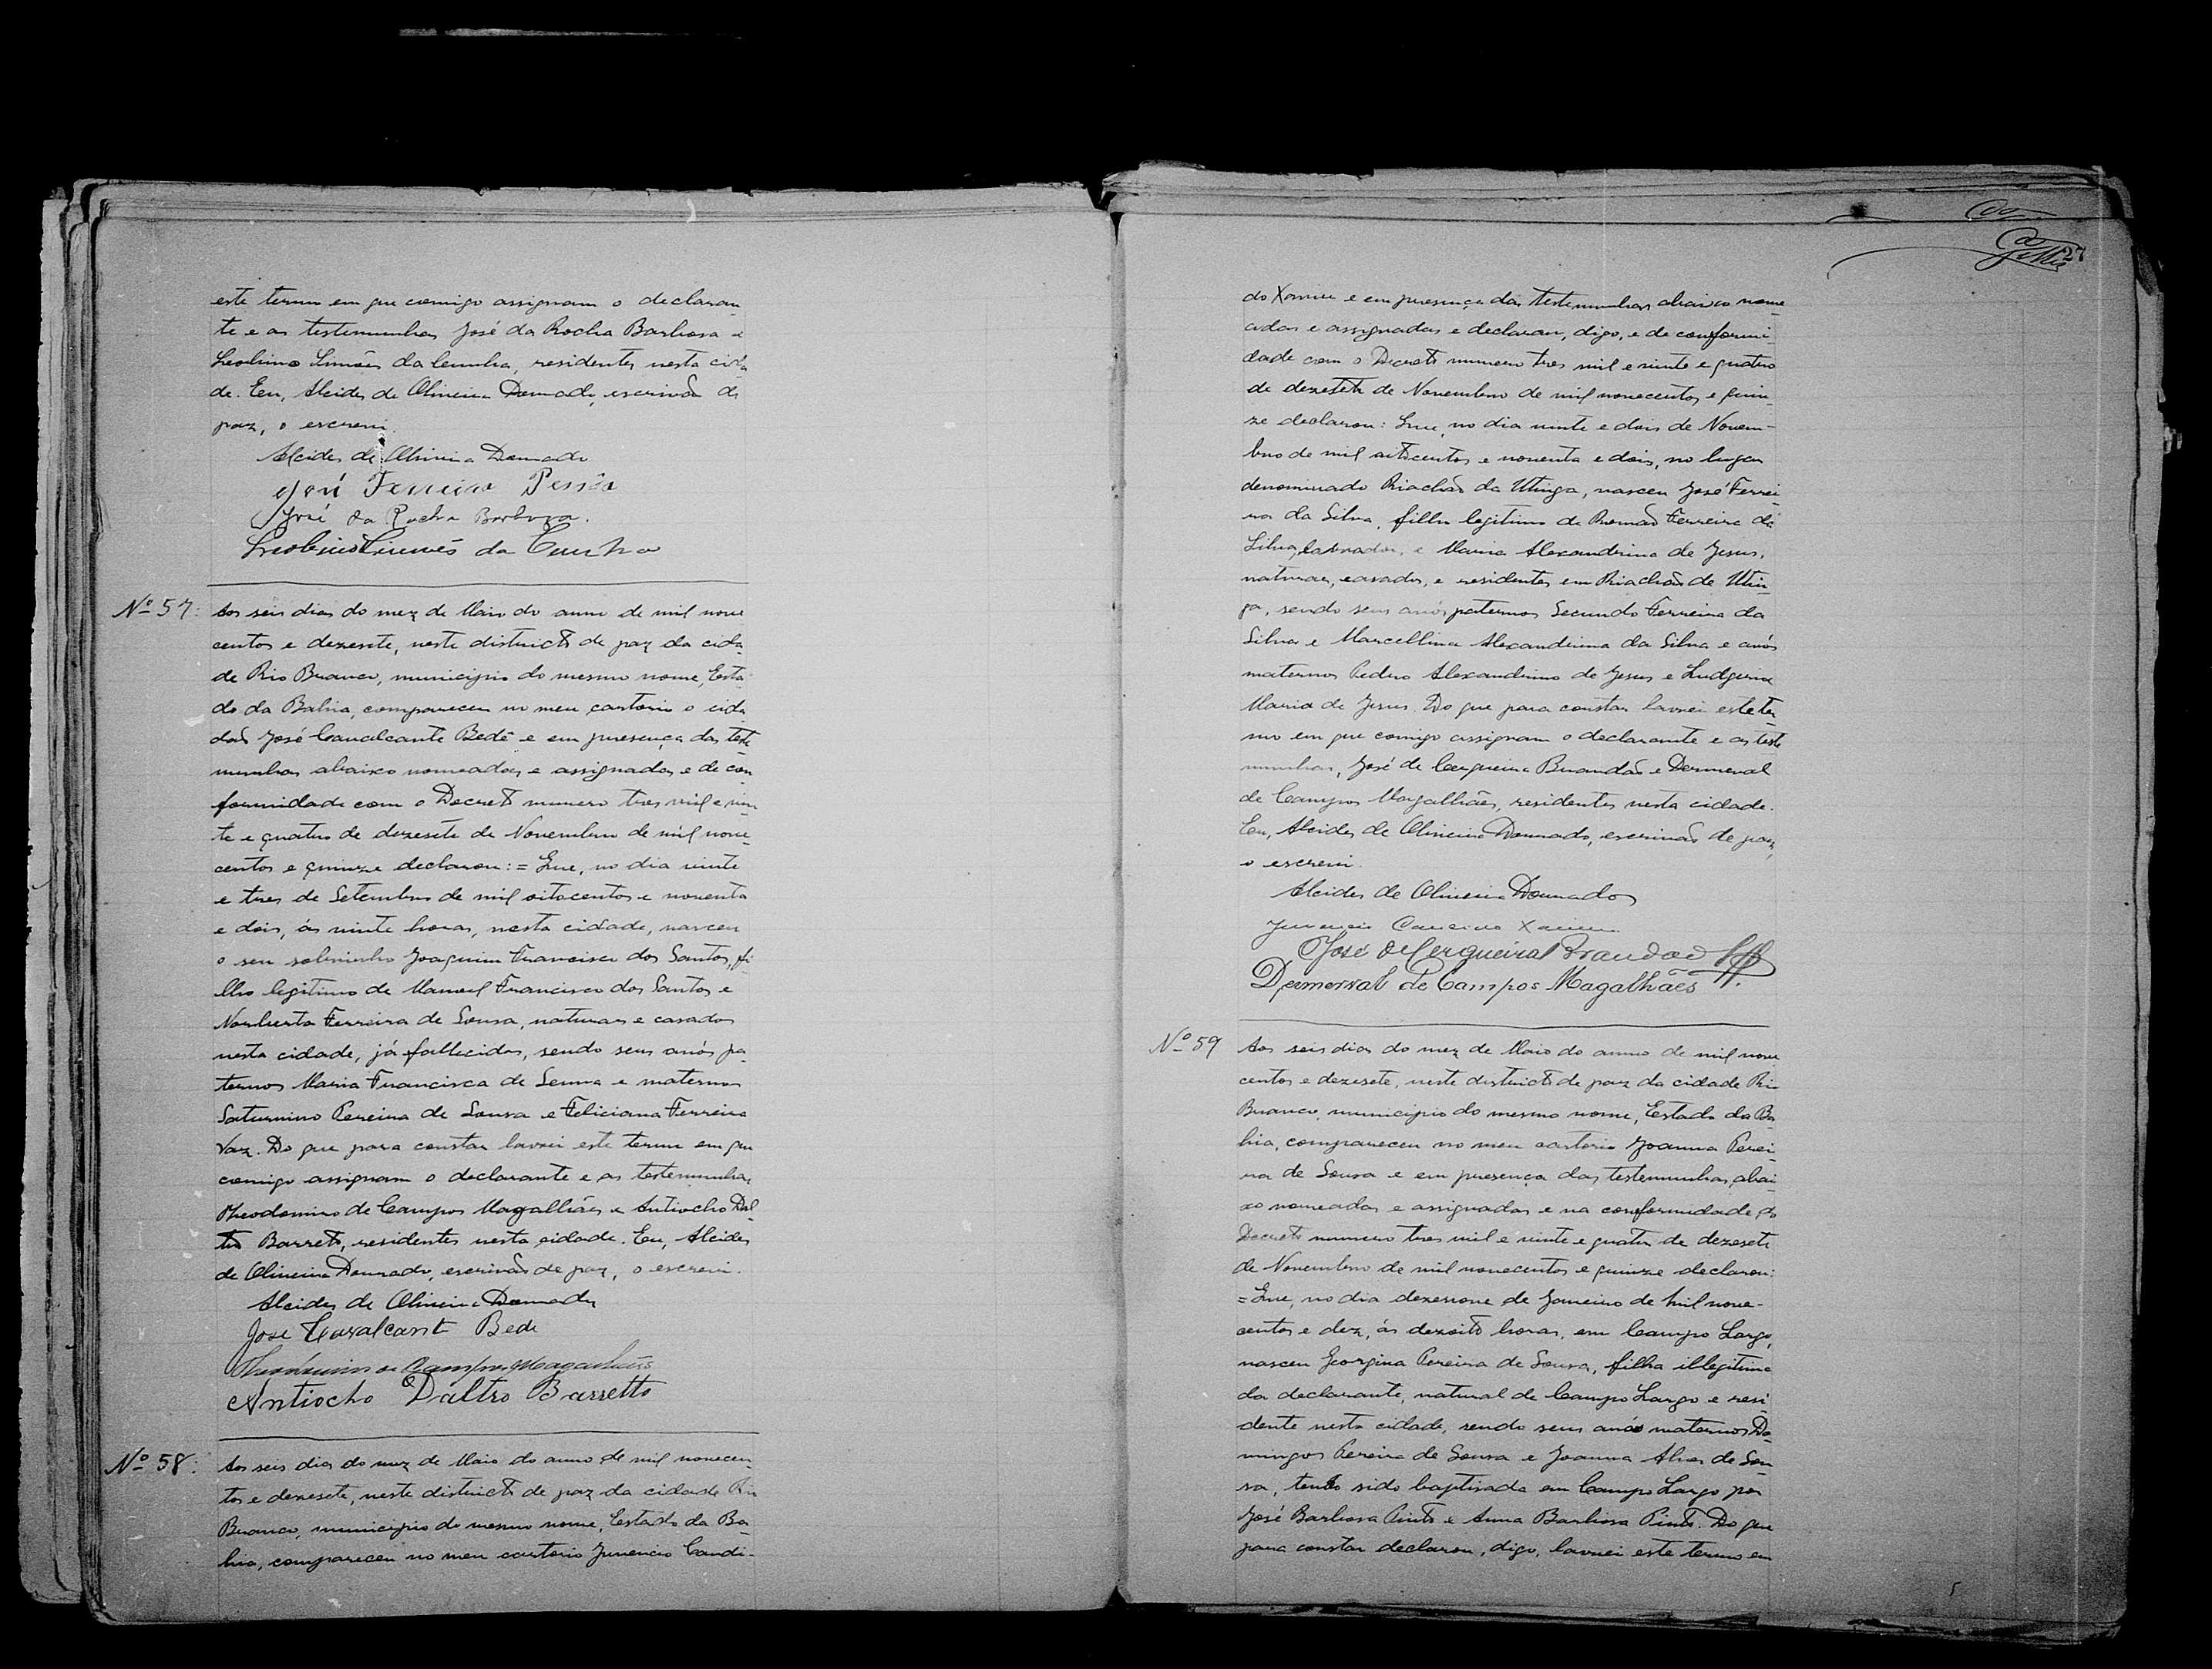 este termo em que comigo assignam o declaran
te e as testemunhas José da Rocha Barbosa e
Leolino Simões da Cunha, residentes nesta cida
de. Eu, Alcides de Oliveira Dourado, escrivão de
paz, o escrevi.
Alcides de Oliveira Dourado
José Ferreira Pessôa
José da Rocha Barboza.
da Cunha
Nº 57:
Aos seis dias do mez de Maio do anno de mil nove
centos e dezesete, neste districto de paz da cida
de Rio Branco, municipio do mesmo nome, Esta
do da Bahia, compareceu no meu cartorio o cida
dão José Cavalcante Bedê e em presença das teste
munhas abaixo nomeadas e assignadas e de con
formidade com o Decreto numero tres mil e vin
te e quatro de dezesete de Novembro de mil nove
centos e quinze declarou: = Que, no dia vinte
e tres de Setembro de mil oitocentos e noventa
e dois, ás vinte horas, nesta cidade, nasceu
o seu sobrinho Joaquim Francisco dos Santos, fi
lho legitimo de Manoel Francisco dos Santos e
Norberta Ferreira de Sousa, naturaes e casados
nesta cidade, já fallecidos, sendo seus avós pa
ternos Maria Francisca de Senna e maternos
Saturnino Pereira de Sousa e Feliciana Ferreira
Vaz. Do que para constar lavrei este termo em que
comigo assignam o declarante e as testemunhas
Theodomiro de Campos Magalhães e Antiocho Dal
tro Barreto, residentes nesta cidade. Eu, Alcides
de Oliveira Dourado, escrivão de paz, o escrevi.
Alcides de Oliveira Dourado
José Cavalcant Bede
Theodomiro de Campos Magalhães
Antiocho Daltro Barretto
Nº 58:
Aos seis dias do mez de Maio do anno de mil novecen
tos e dezesete, neste districto de paz da cidade Rio
Branco, municipio do mesmo nome, Estado da Ba
hia, compareceu no meu cartorio Juvencio Candi-
27
do Xavier e em presença das testemunhas abaixo nome
adas e assignadas e declarou, digo, e de conformi
dade com o Decreto numero tres mil e vinte e quatro
de dezesete de Novembro de mil novecentos e quin
ze declarou: Que, no dia vinte e dois de Novem-
bro de mil oitocentos e noventa e dois, no lugar
denominado Riachão da Utinga, nasceu José Ferrei
ra da Silva, filho legitimo de Romão Ferreira da
Silva, lavrador, e Maria Alexandrina de Jesus,
naturaes, casados, e residentes em Riachão de Utin
ga, sendo seus avós paternos Secundo Ferreira da
Silva e Marcellina Alexandrina da Silva e avós
maternos Pedro Alexandrino de Jesus e Ludgeria
Maria de Jesus. Do que para constar lavrei este ter
mo em que comigo assignam o declarante e as teste
munhas, José de Cerqueira Brandão e Dermeval
de Campos Magalhães, residentes nesta cidade.
Eu, Alcides de Oliveira Dourado, escrivão de paz,
o escrevi.
Alcides de Oliveira Dourado
Juvencio Xavier
José de Cerqueira Brandão
Dermerval de Campos Magalhães
Nº 59
Aos seis dias do mez de Maio do anno de mil nove
centos e dezesete, neste districto de paz da cidade Rio
Branco, municipio do mesmo nome, Estado da Ba
hia, compareceu no meu cartorio Joanna Perei
ra de Sousa e em presença das testemunhas abai
xo nomeadas e assignadas e na conformidade do
Decreto numero tres mil e vinte e quatro de dezesete
de Novembro de mil novecentos e quinze declarou:
= Que, no dia dezenove de Janeiro de mil nove-
centos e dez, ás dezoito horas, em Campo Largo,
nasceu Georgina Pereira de Sousa, filha illegitima
da declarante, natural de Campo Largo e resi
dente nesta cidade, sendo seus avós maternos Do
mingos Pereira de Sousa e Joanna Alves de Sou
sa, tendo sido baptisada em Campo Largo por
José Barbosa Pinto e Anna Barbosa Pinto. Do que
para constar declarou, digo, lavrei este termo em